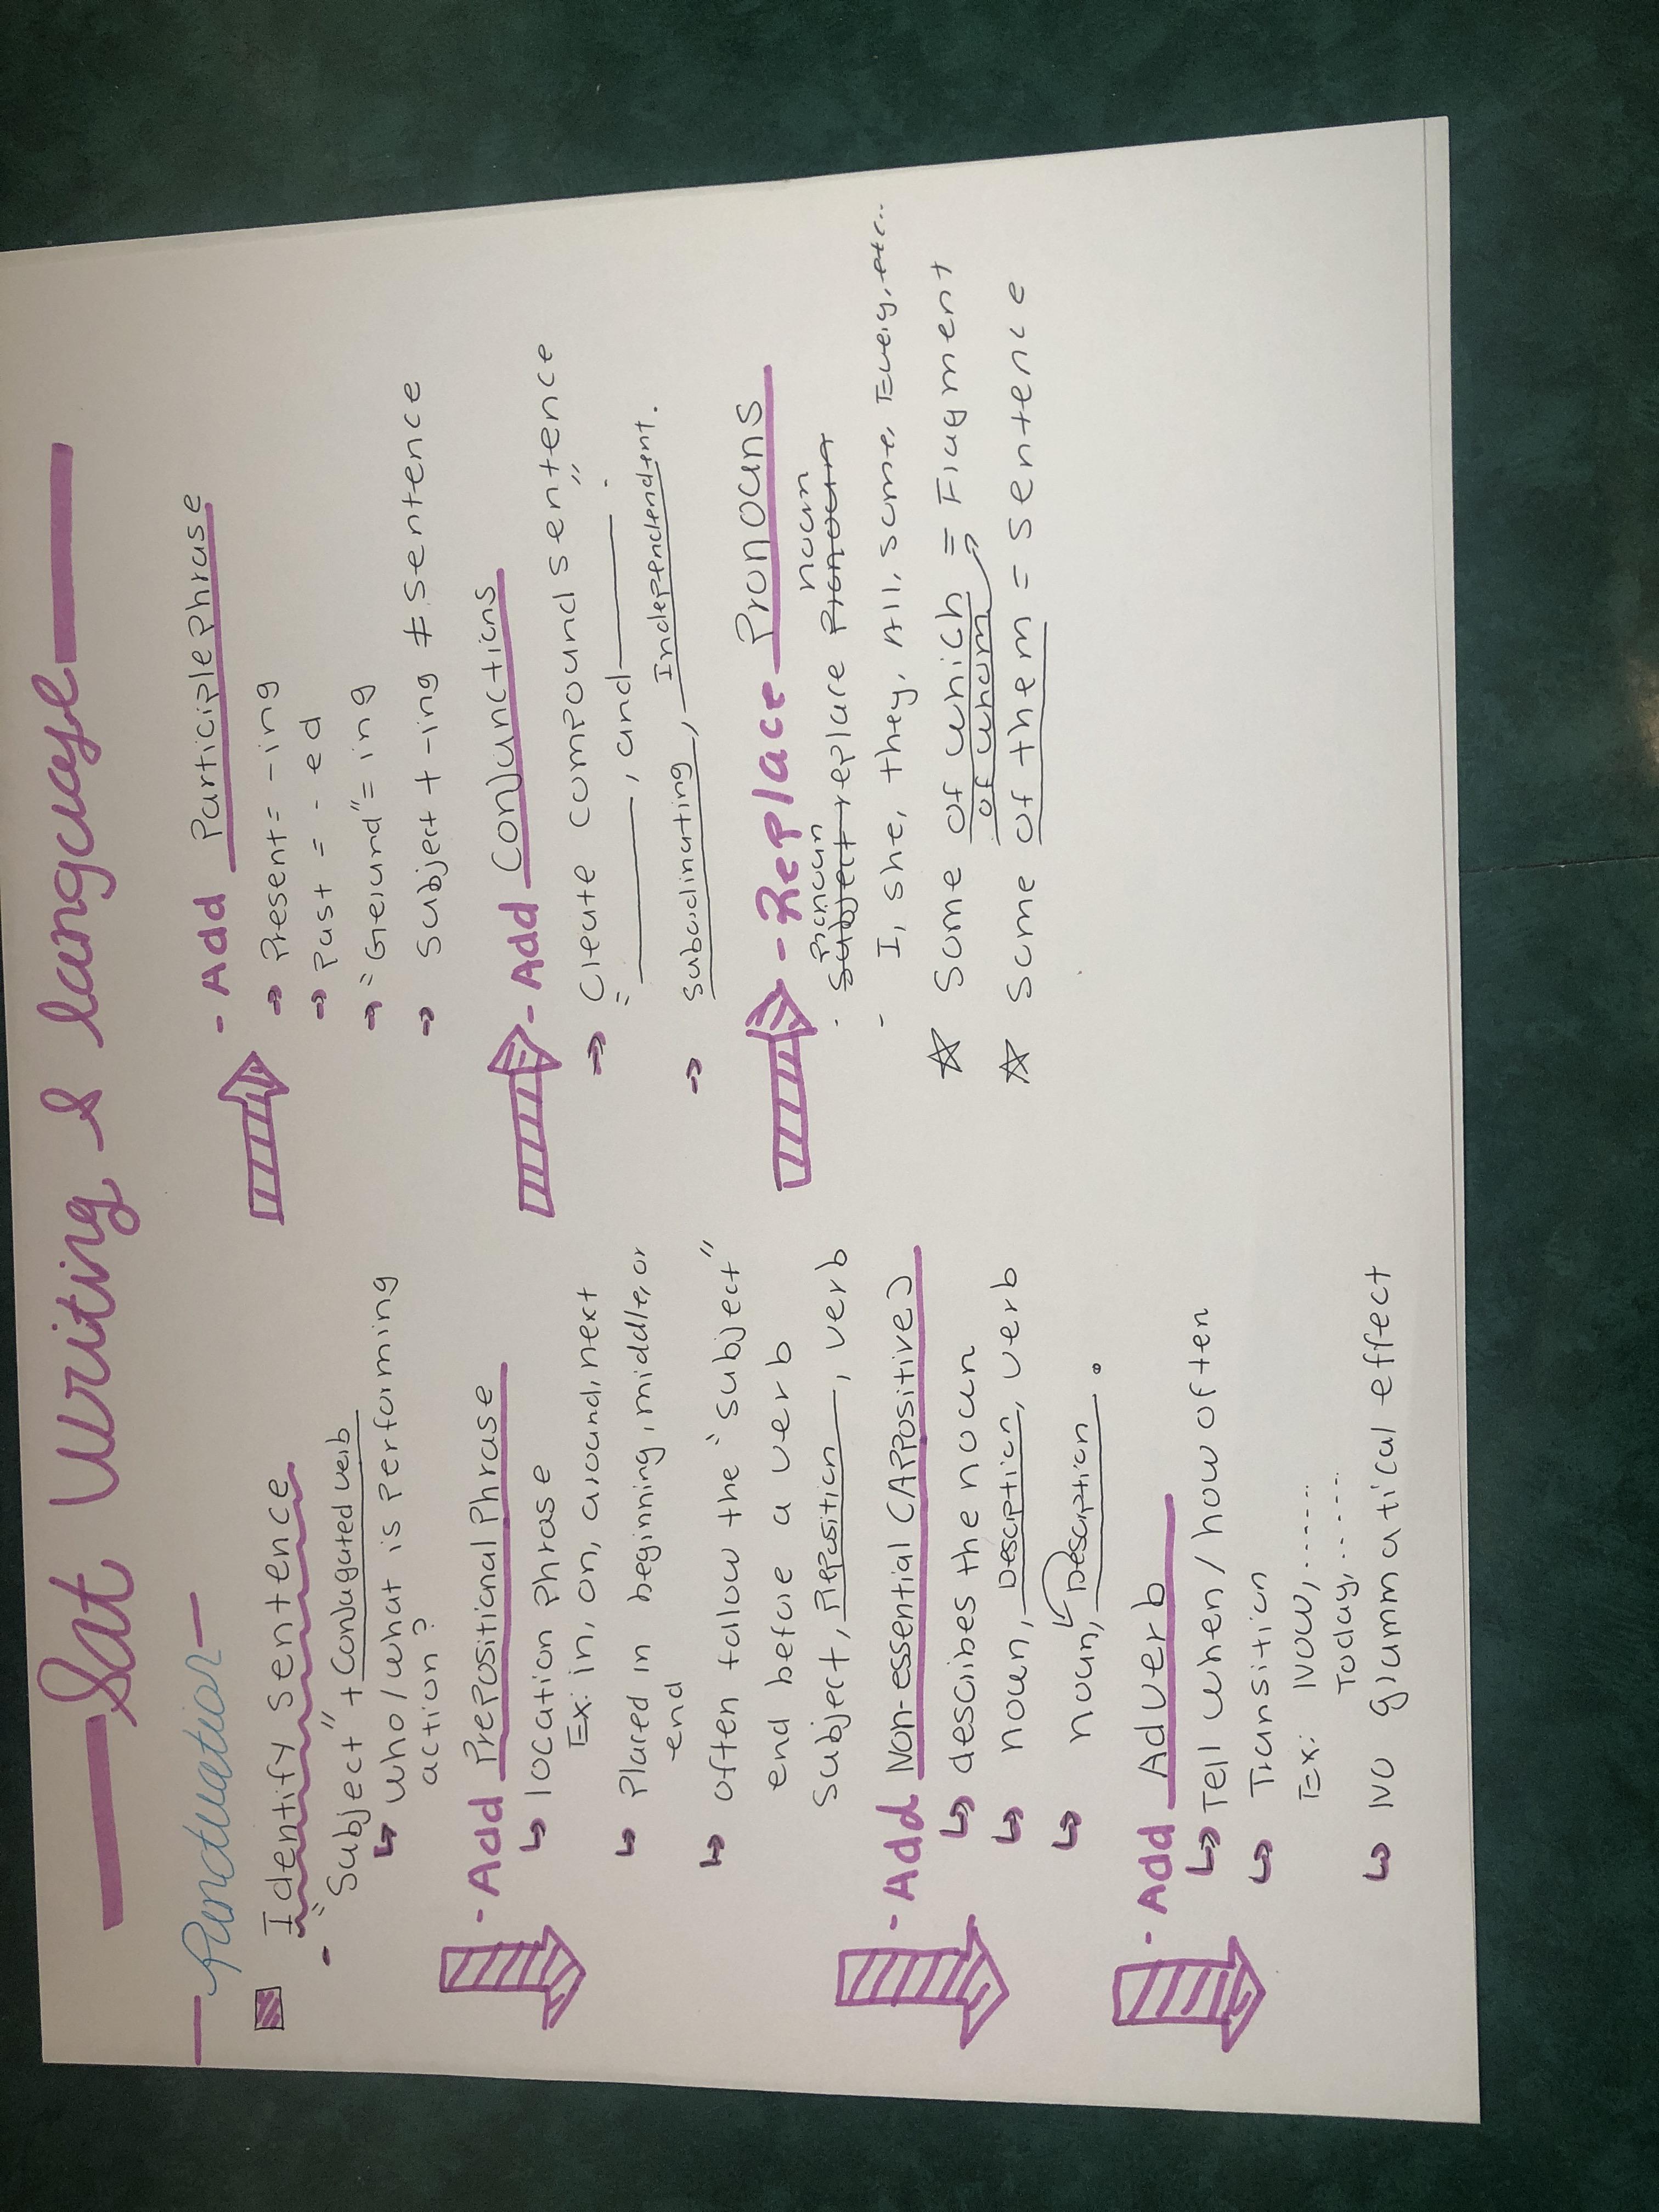 Sat Writing & language
Punctuation
Identify sentence
- "Subject" + conjugated verb
↳ who / what is performing
action?
- Add Prepositional Phrase
↳ location phrase
Ex: in, on, around, next
↳ Placed in beginning, middle, or
end
↳ often follow the "subject"
end before a verb
subject, preposition, verb
- Add Non-essential (Appositive)
↳ describes the noun
↳ noun, Description, verb
↳ noun, Description.
- Add Adverb
↳ Tell when / how often
↳ Transition
Ex: Now, .....
Today, .....
↳ No grammatical effect
- Add Participle Phrase
→ Present = -ing
→ Past = - ed
→ "Gerund" = ing
→ Subject + -ing ≠ sentence
- Add Conjunctions
→ Create compound sentence
" ____, and ____. "
→ subordinating, Independendent.
- Replace Pronouns
Pronoun noun
· Subject replace Pronoun
- I, she, they, All, some, Every, etc..
☆ Some of which = Fragment
of whom
☆ Some of them = sentence